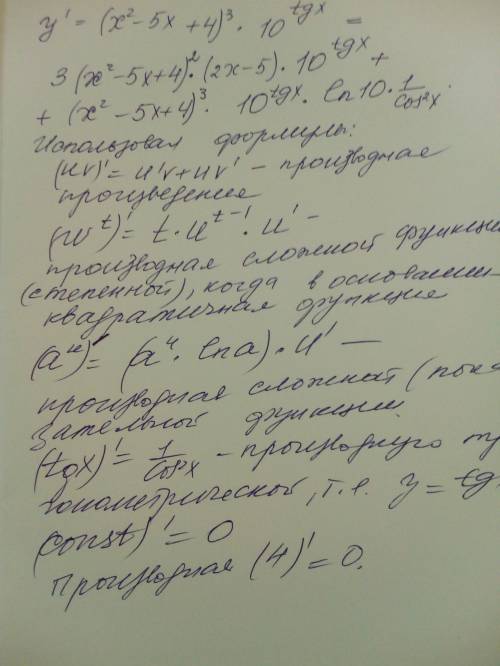 y' = (x²-5x+4)³ · 10^tgx =
3(x²-5x+4)² · (2x-5) · 10^tgx +
+ (x²-5x+4)³ · 10^tgx · ln10 · 1/cos²x.
Использовал формулы:
(uv)' = u'v + uv' – производная
произведения
(u^t)' = t · u^t-1 · u' –
производная сложной функции
(степенной), когда в основании
квадратичная функция
(a^u)' = (a^u · lna) · u' —
производная сложной (пока
зательной функции.
(tgx)' = 1/cos²x – производную тр
гонометрической, т.е. y = tg
(const)' = 0
Производная (4)' = 0.